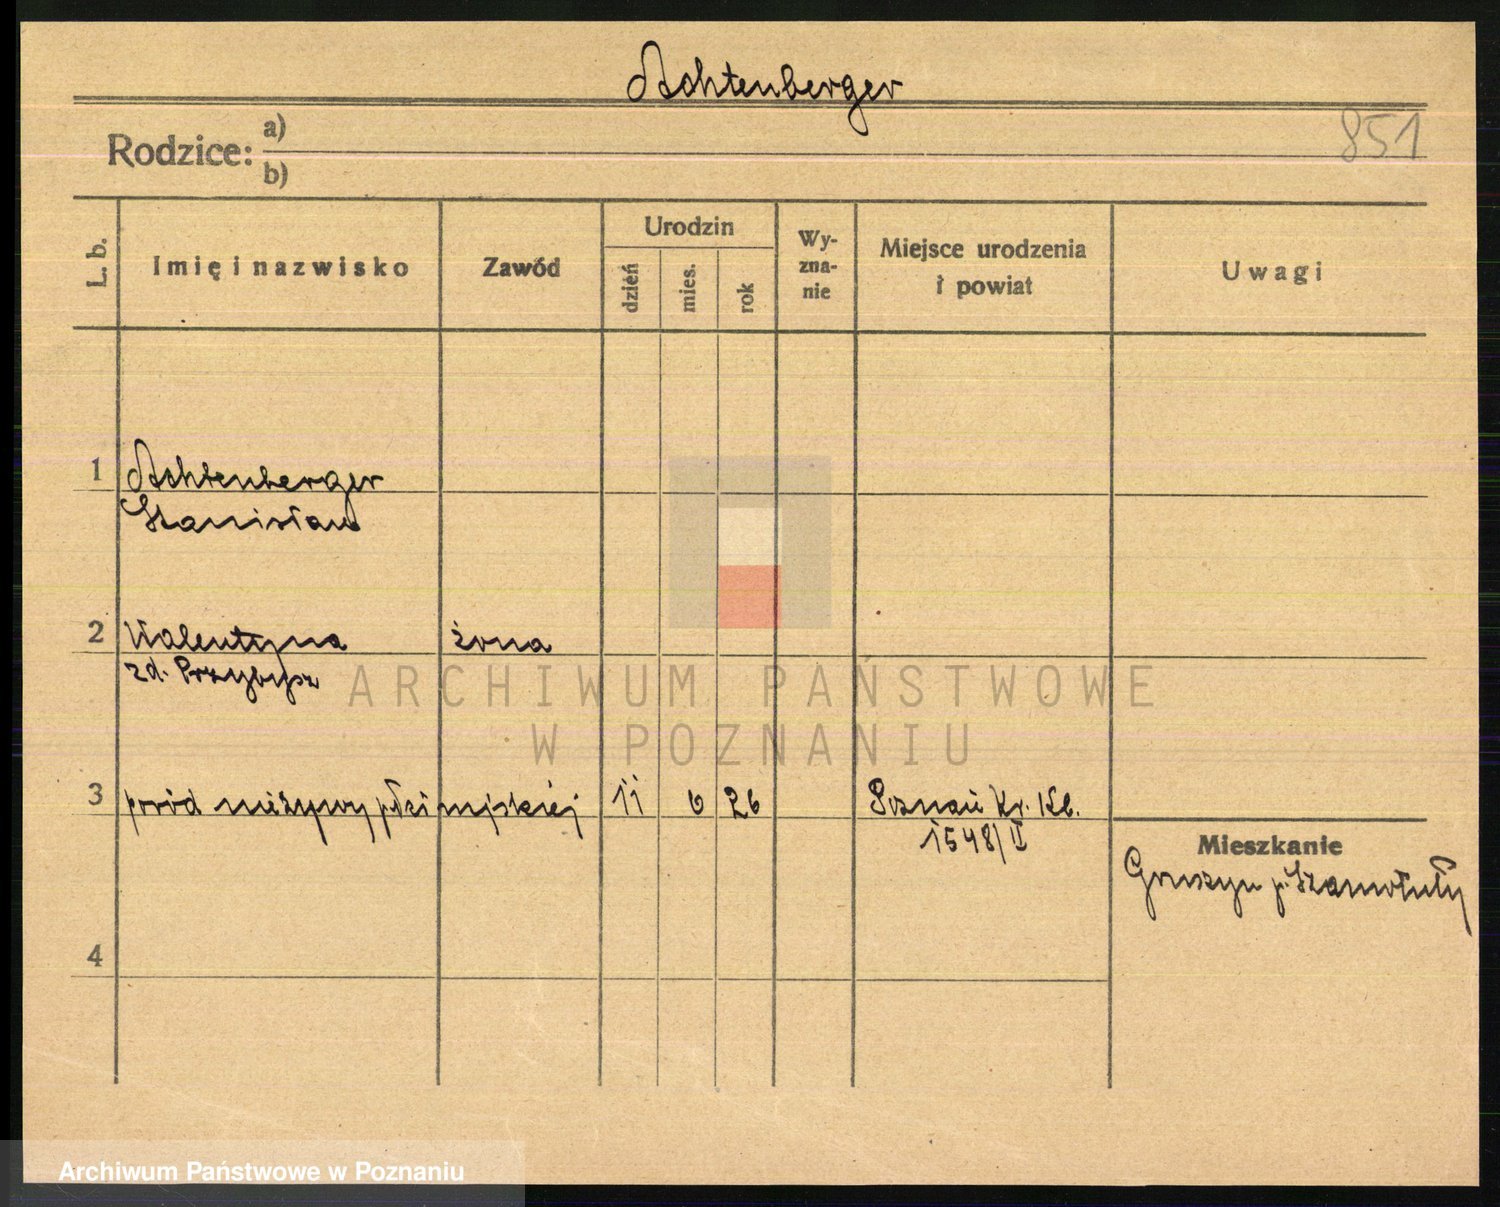 Achtenberger
851
Rodzice: a)
b)
L. b.
Imię i nazwisko
Zawód
Urodzin
dzień
mies.
rok
Wy-
zna-
nie
Miejsce urodzenia
i powiat
Uwagi
1 Achtenberger
Stanisław
2 Walentyna żona
zd. Przybysz
ARCHIWUM PAŃSTWOWE
W POZNANIU
3 poród nieżywy płci męskiej 11 6 26 Poznań Kr. Kl.
1548/II
Mieszkanie
p. Szamotuły
4
Archiwum Państwowe w Poznaniu